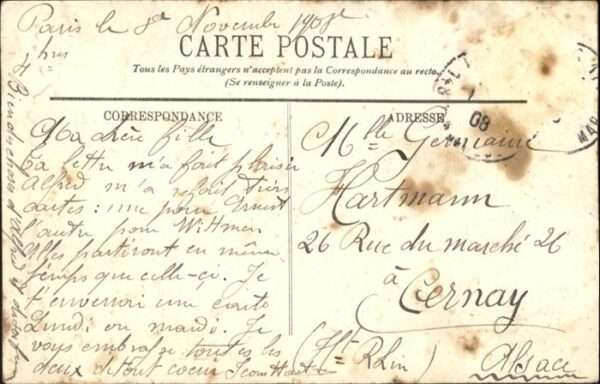 Paris le 8 Novembre 1908
4 hres
CARTE POSTALE
Tous les Pays étrangers n'acceptent pas la Correspondance au recto.
(Se renseigner à la Poste).
CORRESPONDANCE
Ma chère fille
Ta lettre m'a fait plaisir
Alfred m'a refait deux
cartes: une pour Ernest
l'autre pour Wittmer
Elles partiront en même
temps que celle-ci. Je
t'enverrai une carte
Lundi ou mardi. Je
vous embrasse toutes les
deux de tout coeur
ADRESSE
Mlle Germaine
Hartmann
26 Rue du marché 26
à
Cernay
(Ht Rhin)
Alsace
08